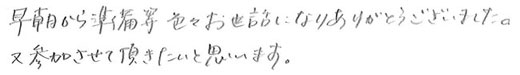 早朝から準備等色々お世話になりありがとうございました。
又参加させて頂きたいと思います。